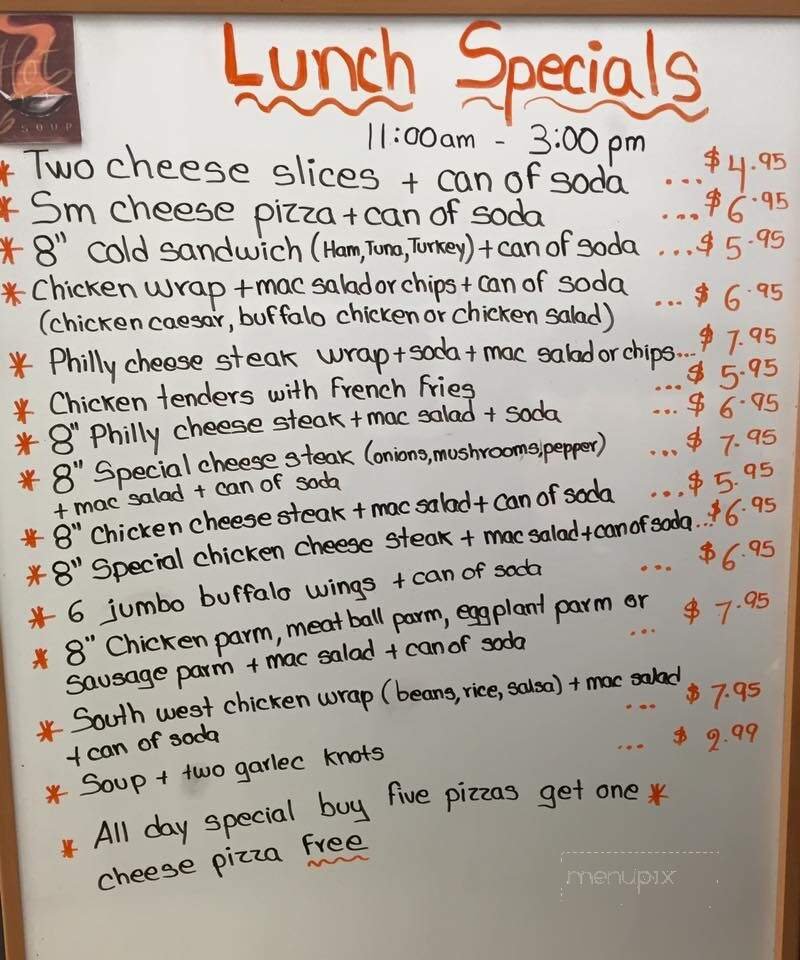 Hot
SOUP
Lunch Specials
11:00am - 3:00 pm
* Two cheese slices + can of soda ... $4.95
* Sm cheese pizza + can of soda ... $6.95
* 8" cold sandwich (Ham, Tuna, Turkey) + can of soda ... $5.95
* Chicken wrap + mac salad or chips + can of soda ... $6.95
(chicken caesar, buffalo chicken or chicken salad)
* Philly cheese steak wrap + soda + mac salad or chips ... $7.95
* Chicken tenders with French Fries ... $5.95
* 8" Philly cheese steak + mac salad + soda ... $6.95
* 8" Special cheese steak (onions, mushrooms, pepper) ... $7.95
+ mac salad + can of soda
* 8" Chicken cheese steak + mac salad + can of soda ... $5.95
* 8" Special chicken cheese steak + mac salad + can of soda ... $6.95
* 6 jumbo buffalo wings + can of soda ... $6.95
* 8" Chicken parm, meat ball parm, eggplant parm or ... $7.95
sausage parm + mac salad + can of soda
* South west chicken wrap (beans, rice, salsa) + mac salad ... $7.95
+ can of soda
* Soup + two garlec knots ... $2.99
* All day special buy five pizzas get one *
cheese pizza free
menupix